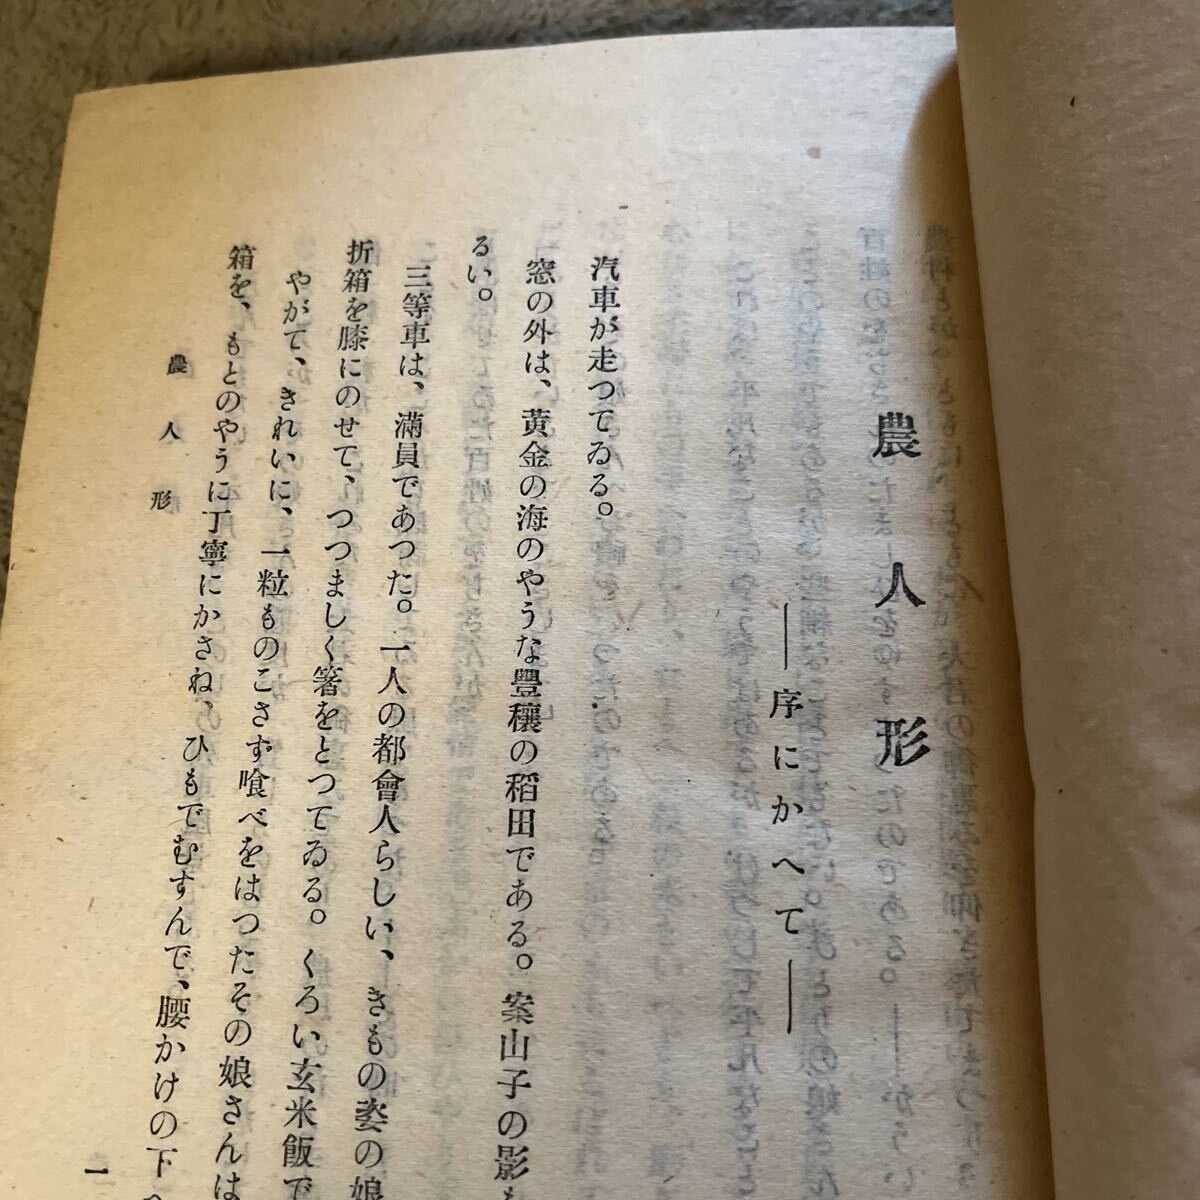 農人形
——序にかへて——
汽車が走つてゐる。
窓の外は、黄金の海のやうな豐穰の稻田である。案山子の影も
るい。
三等車は、滿員であつた。一人の都會人らしい、きもの姿の娘
折箱を膝にのせて、つつましく箸をとつてゐる。くろい玄米飯で
やがて、きれいに、一粒ものこさず喰べをはつたその娘さんは
箱を、もとのやうに丁寧にかさね、ひもでむすんで、腰かけの下
農人形
一